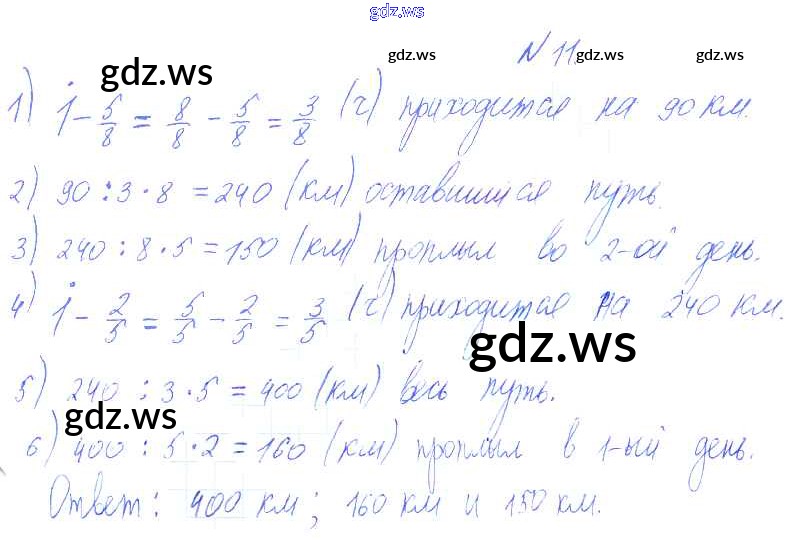 gdz.ws
gdz.ws gdz.ws gdz.ws gdz.ws
N 11
1) 1 - 5/8 = 8/8 - 5/8 = 3/8 (ч) приходится на 90 км.
2) 90 : 3 · 8 = 240 (км) оставшийся путь.
3) 240 : 8 · 5 = 150 (км) проплыл во 2-ой день.
4) 1 - 2/5 = 5/5 - 2/5 = 3/5 (ч) приходится на 240 км.
gdz.ws
5) 240 : 3 · 5 = 400 (км) весь путь.
gdz.ws
6) 400 : 5 · 2 = 160 (км) проплыл в 1-ый день.
Ответ: 400 км; 160 км и 150 км.